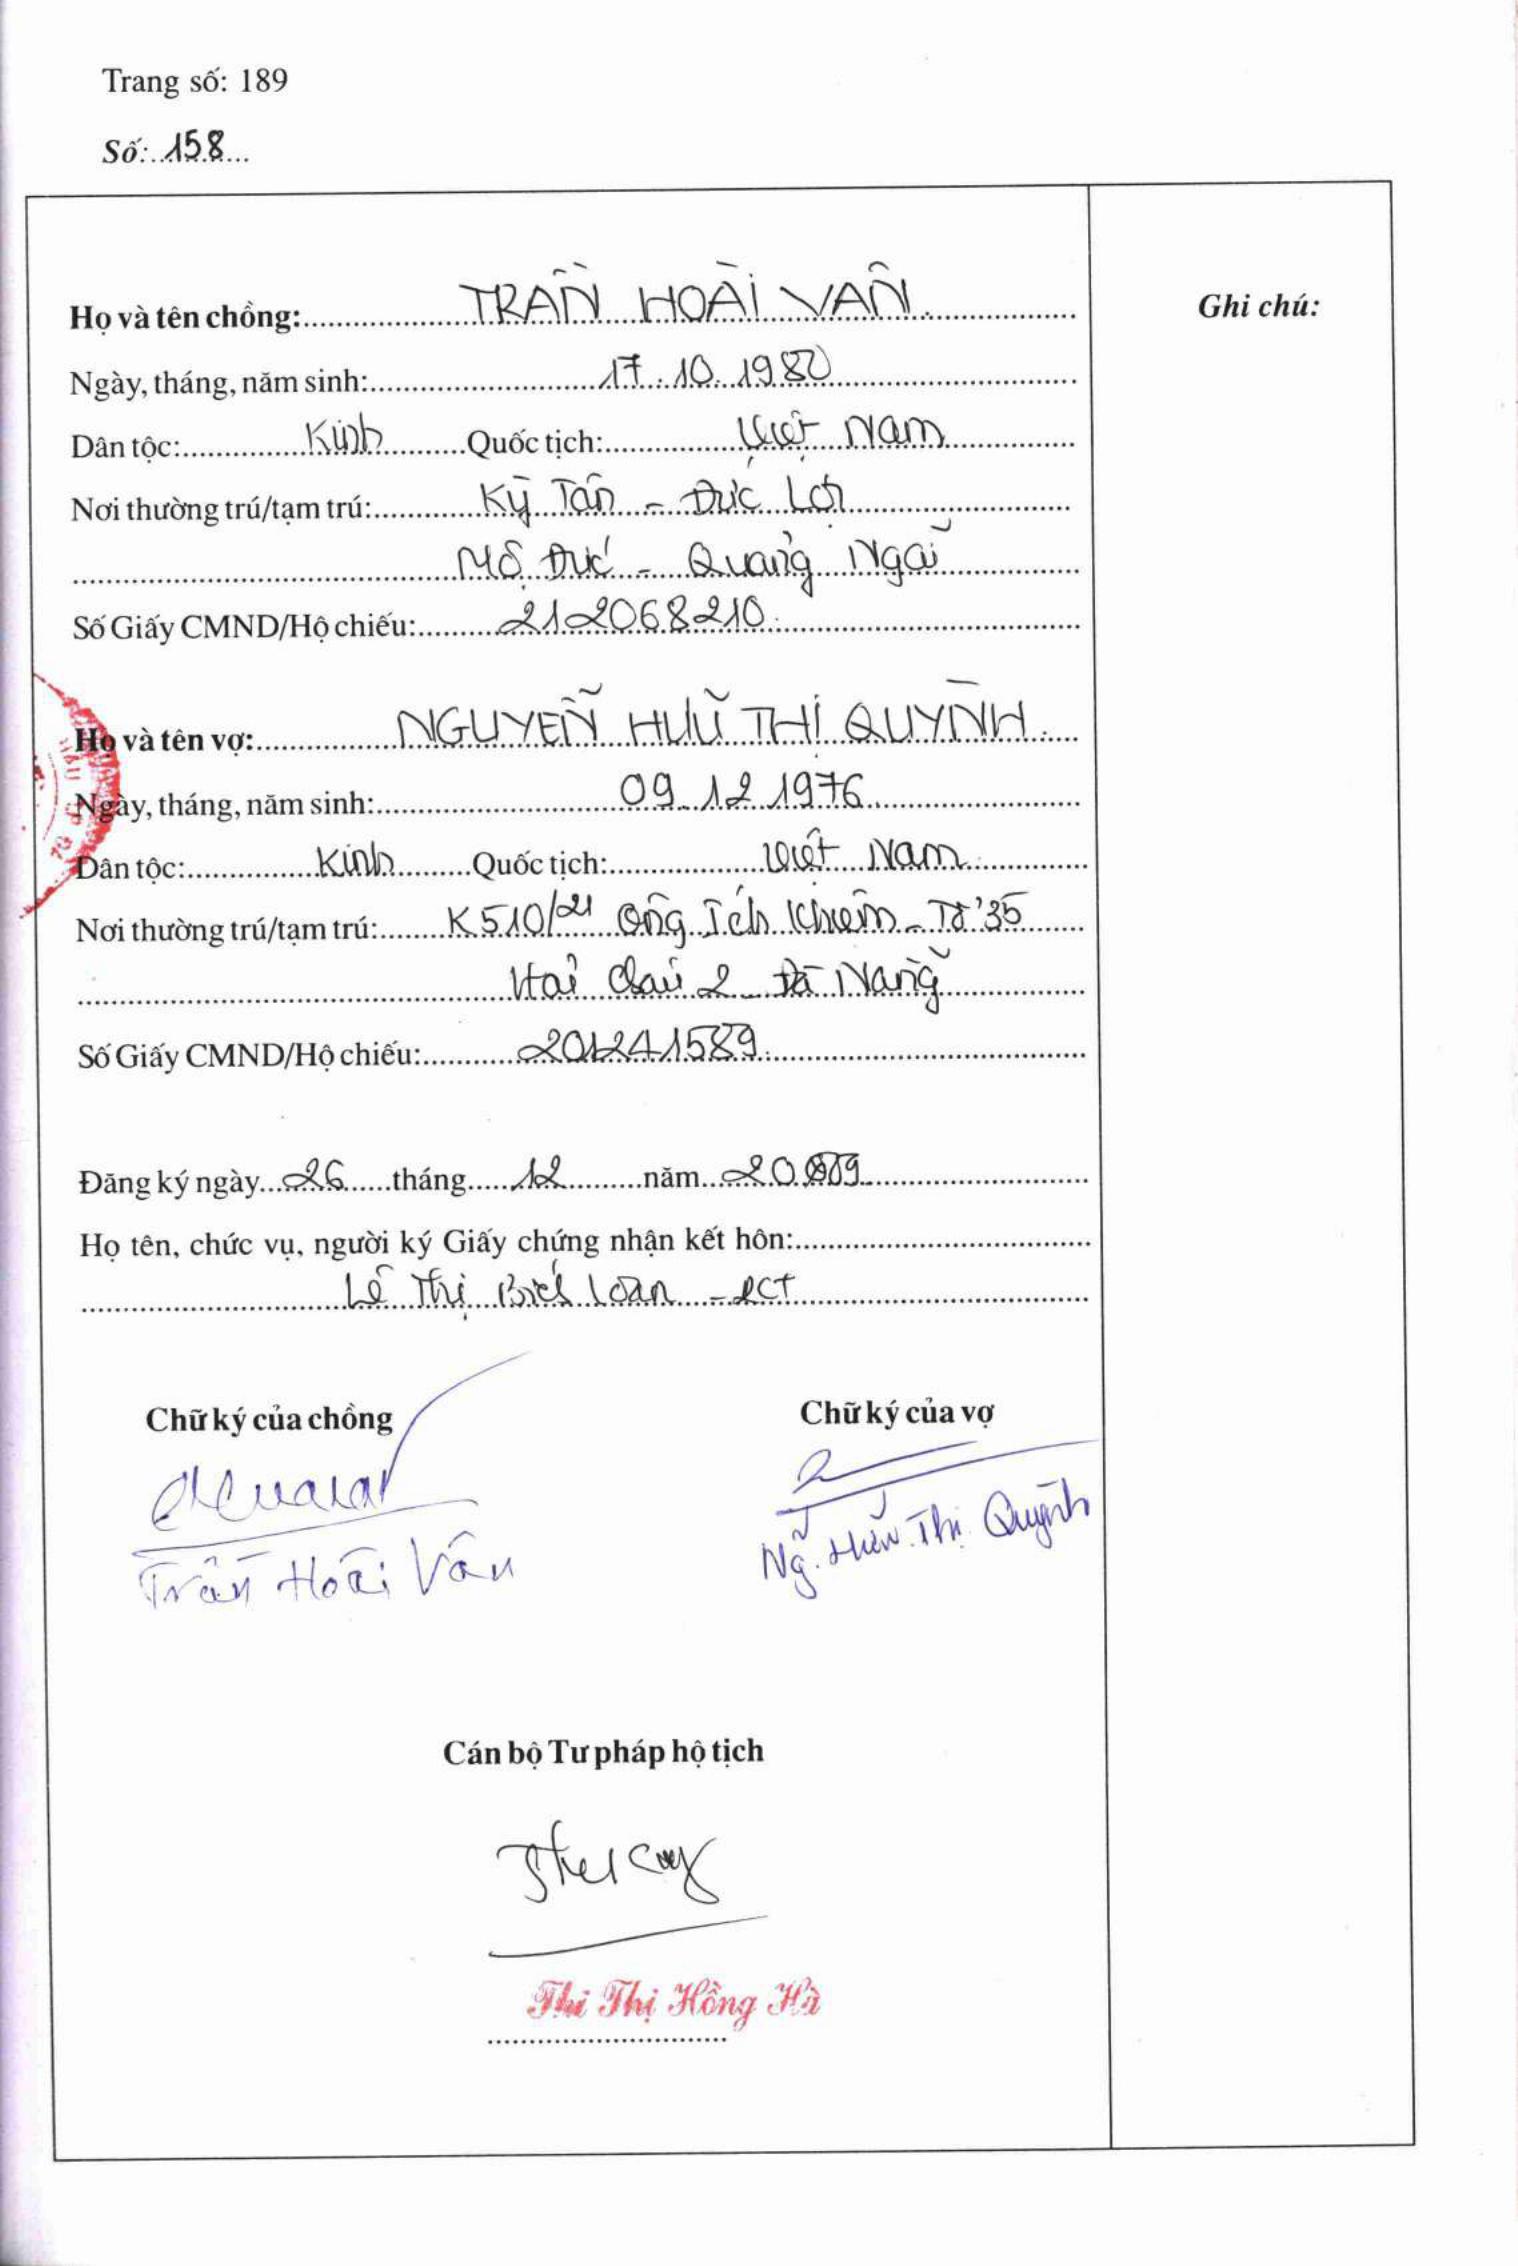 Trang số: 189
Số: 158
Họ và tên chồng: TRẦN HOÀI VÂN
Ghi chú:
Ngày, tháng, năm sinh: 17.10.1980
Dân tộc: Kinh Quốc tịch: Việt Nam
Nơi thường trú/tạm trú: Kỳ Tân - Đức Lợi
Mộ Đức - Quảng Ngãi
Số Giấy CMND/Hộ chiếu: 212068210
Họ và tên vợ: NGUYỄN HỮU THỊ QUỲNH
Ngày, tháng, năm sinh: 09.12.1976
Dân tộc: Kinh Quốc tịch: Việt Nam
Nơi thường trú/tạm trú: K510/21 Ông Ích Khiêm - Tổ 35
Hải Châu 2 - Đà Nẵng
Số Giấy CMND/Hộ chiếu: 201241589
Đăng ký ngày 26 tháng 12 năm 2009
Họ tên, chức vụ, người ký Giấy chứng nhận kết hôn:
Lê Thị Bích Loan - PCT
Chữ ký của chồng Chữ ký của vợ
Trần Hoài Vân Ng. Hữu Thị Quỳnh
Cán bộ Tư pháp hộ tịch
Thi Thị Hồng Hà